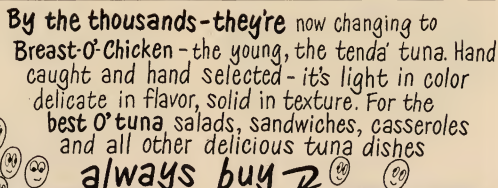 By the thousands-they're now changing to
Breast-O'-Chicken - the young, the tenda' tuna. Hand
caught and hand selected - it's light in color
delicate in flavor, solid in texture. For the
best O' tuna salads, sandwiches, casseroles
and all other delicious tuna dishes
always buy